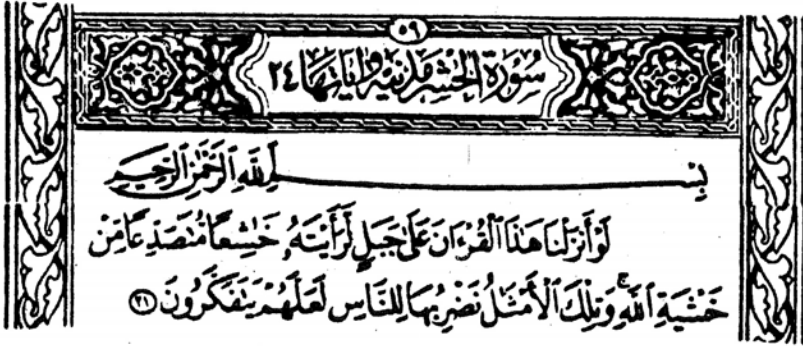 ٥٩
سُورَةُ الْحَشْرِ مَدَنِيَّةٌ وَآيَاتُهَا ٢٤
بِسْمِ اللَّهِ الرَّحْمَٰنِ الرَّحِيمِ
لَوْ أَنزَلْنَا هَٰذَا الْقُرْءَانَ عَلَىٰ جَبَلٍ لَّرَأَيْتَهُۥ خَٰشِعًا مُّتَصَدِّعًا مِّنْ
خَشْيَةِ اللَّهِ ۚ وَتِلْكَ الْأَمْثَٰلُ نَضْرِبُهَا لِلنَّاسِ لَعَلَّهُمْ يَتَفَكَّرُونَ ٢١